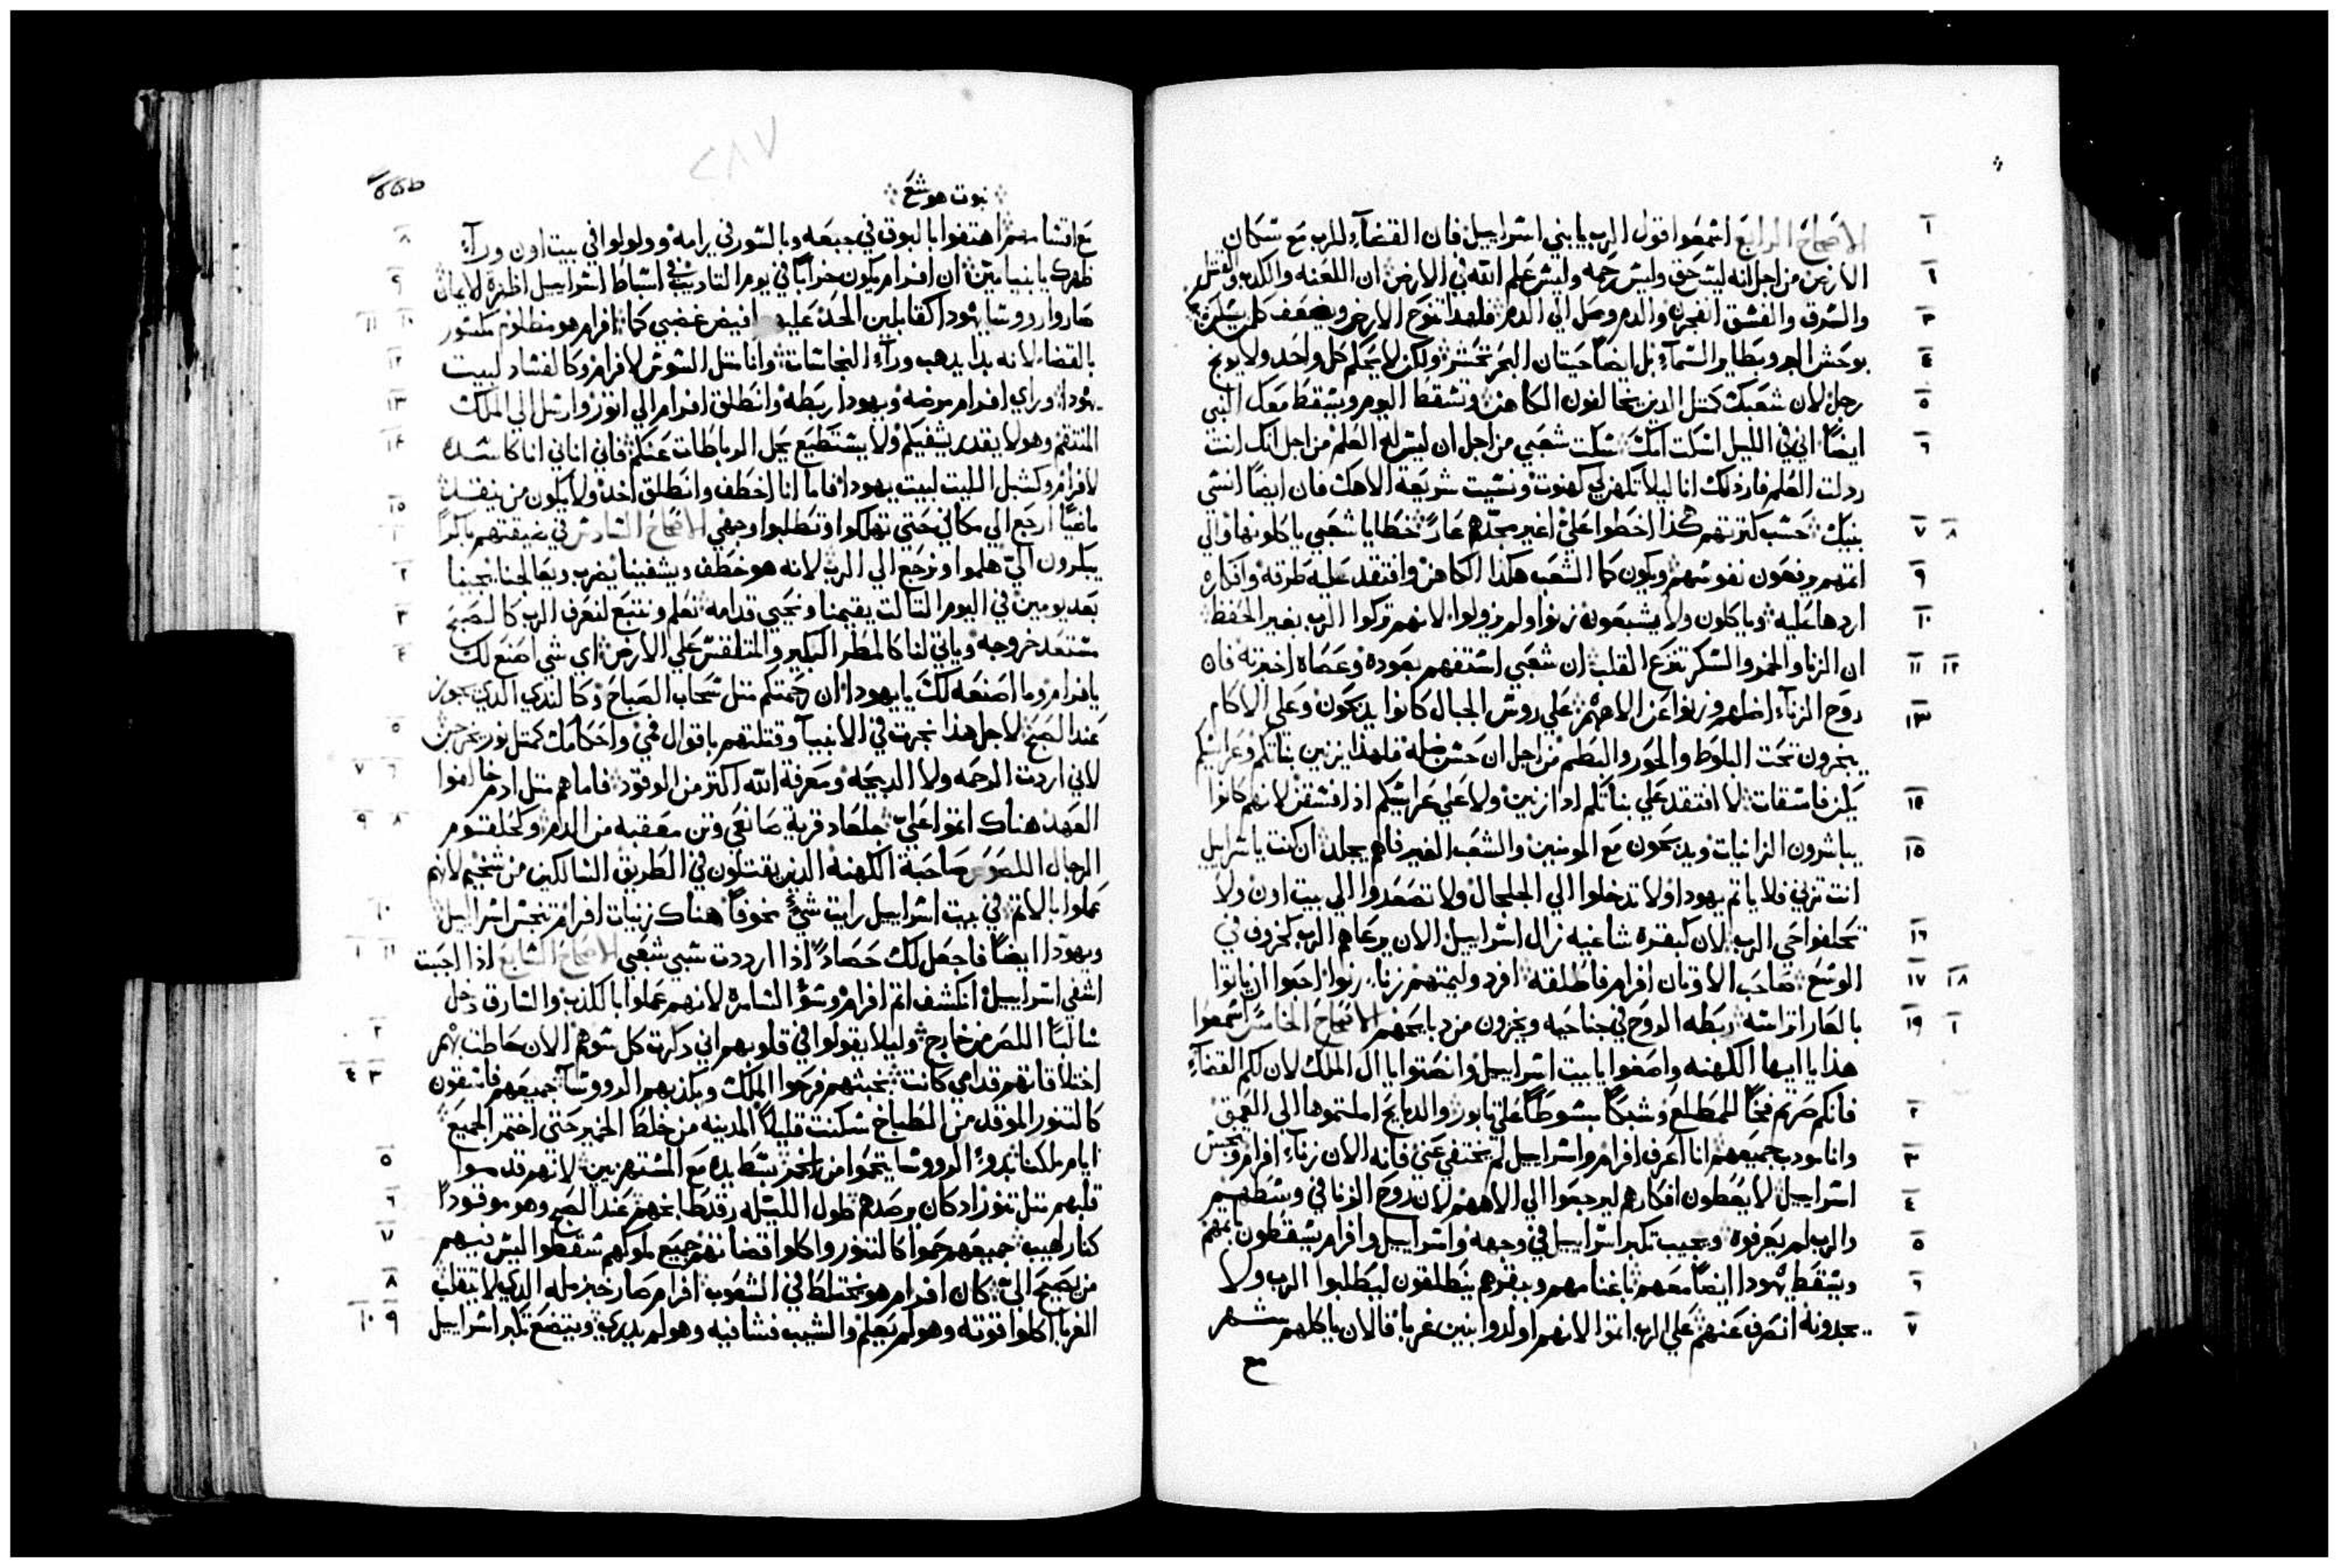 الاصحاح الرابع اسمعوا قول الرب يا بني اسراييل فان القضآء للرب مع سكان
الارض من اجل انه ليس حق وليس رحمه وليس علم الله في الارض ان اللعنه والكدب والقتل
والسرق والفسق انفجره والدم وصل الي الدم فلهدا تنوح الارض ويضعف كلمن يسكن
بوحش البر وبطاير السمآء بل ايضا حيتان البحر تختشر ولكن لا يحكم كل واحد ولا يوبخ
رجل لان شعبك كمتل الدين يخالفون الكاهن وتسقط اليوم ويسقط معك النبي
ايضا اني في الليل اسكت امك سكت شعبي من اجل ان ليس له العلم من اجل انك انت
ردلت العلم فاردلك انا ليلا تكهن لي كهنوت ونسيت شريعة الاهك فان ايضا انسي
بنيك حسب كترتهم كذا اخطوا علي اغير مجدهم عارً خطايا شعبي ياكلونها والي
اتمهم يرفعون نفوسهم ويكون كما الشعب هكدا الكاهن وافتقد عليه طرقه وافكاره
اردها عليه وياكلون ولا يشبعون زنوا ولم يزولوا لانهم تركوا الرب بغير الحفظ
ان الزنا والخمر والسكر تنزع القلب ان شعبي استفهم بعوده وعصاه اخبرته فان
روح الزنآء اضلهم وزنوا عن الاههم علي روس الجبال كانوا يدبحون وعلي الاكام
يبخرون تحت البلوط والحور والبطم من اجل ان حسن ضله فلهدا يزنين بناتكم وعرايسكم
يكن فاسقات لا افتقد علي بناتكم ادا زنين ولا علي عرايسكم ادا فسقن لانهم كانوا
يباشرون الزانيات ويدبحون مع المونتين والشعب الغير فاهم يجلد ان كنت يا اسراييل
انت تزني فلا ياتم يهودا ولا تدخلوا الي الجلجال ولا تصعدوا الي بيت اون ولا
تحلفوا حي الرب لان كبقره شاغيه زال اسراييل الان يرعاهم الرب كخروف في
الوسع صاحب الاوتان افرام فاطلقه افرد وليمتهم زنا زنوا احبوا ان ياتوا
بالعار اتراسه ربطه الروح في جناحيه ويخزون من دبايحهم الاصحاح الخامس اسمعوا
هدا يا ايها الكهنه واصغوا يا بيت اسراييل وانصتوا يا ال الملك لان لكم القضآء
فانكم صرتم فخاً للمطلع وشبكاً بسوطاً علي تابور والدبايح املتموها الي العمق
وانا مودب جميعهم انا اعرف افرام واسراييل لم يختفي عني فانه الان زنآء افرام وتنجس
اسراييل لا يعطون افكارهم ليرجعوا الي الاههم لان روح الزنا في وسطهم
والرب لم يعرفوه ويجيب تكبر اسراييل في وجهه واسراييل وافرام يسقطون باتمهم
ويسقط يهودا ايضا معهم باغنامهم وبقرهم ينطلقون ليطلبوا الرب ولا
يجدونه انصرف عنهم علي الرب اتموا لانهم اولدوا بنين غربا فالان ياكلهم شهر
مع
٢٨٧
نبوت هوشع
مع اقسامهم اهتفوا بالبوق في جبعه وبالسور في رامه وولولوا في بيت اون ورآء
ظهرك يا بنيامين ان افرام يكون خراباً في يوم التاديب في اسباط اسراييل اظهرة الايمان
صاروا روسا يهودا كقابلين الحد عليهم افيض غضبي كما افرام هو مظلوم مكسور
بالقضاء لانه بدا يدهب ورآء النجاسات وانا متل السوس لافرام وكالفساد لبيت
يهودا وراي افرام مرضه ويهودا ربطه وانطلق افرام الي اتور وارسل الي الملك
المنتقم وهو لا يقدر يشفيكم ولا يستطيع يحل الرباطات عنكم فاني اناني انا كاسده
لافرام وكشبل الليت لبيت يهودا فاما انا اخطف وانطلق اخد ولا يكون من ينقد
ماضياً ارجع الي مكاني حتي تهلكوا وتطلبوا وجهي الاصحاح السادس في ضيقتهم باكراً
يبكرون الي هلموا ونرجع الي الرب لانه هو خطف ويشفينا يضرب ويعالجنا يحيينا
بعد يومين في اليوم التالت يقيمنا ونحيي قدامه نعلم ونتبع لنعرف الرب كالصبح
مستعد خروجه وياتي لنا كالمطر البكير والمتلقس علي الارض اي شي اصنع لك
يا فرام وما اصنعه لك يا يهودا ان رحمتكم متل سحاب الصباح وكالندي الدي يجوز
عند الصبح لاجل هدا نجرت في الانبيآ وقتلتهم باقوال فمي واحكامك كمتل نور يخرجن
لاني اردت الرحمه ولا الدبيحه ومعرفة الله اكتر من الوقود فاما هم متل ادم خالفوا
العهد هناك اتموا علي جلعاد قرية صانعي وتن معقبه من الدم وكحلقتوم
الرجال اللصوص صاحبة الكهنه الدين يقتلون في الطريق السالكين من شخيم لانهم
عملوا بالاتم في بيت اسراييل رايت شيء مخوفاً هناك زنيات افرام تنجس اسراييل
ويهودا ايضا فاجعل لك حصاداً ادا ارددت سبي شعبي الاصحاح السابع ادا احببت
اشفي اسراييل انكشف اتم افرام وسوء السامره لانهم عملوا بالكدب والسارق دخل
سالباً اللص من خارج وليلا يقولوا في قلوبهم اني دكرت كل سوهم الان حاطت بهم
اختلافاتهم قدامي كانت بخبتهم فرحوا الملك وبكدبهم الرووسآ جميعهم فاسقون
كالتنور الموقد من الطباخ سكنت قليلاً المدينه من خلط الخمير حتي اختمر الجميع
ايام ملكنا بدوء الرووسا يتحموا من الخمر بسط يده مع المستهزيين لانهم قدموا
قلبهم متل تنور اد كان يرصدهم طول الليل رقد طابخهم عند الصبح وهو موقوداً
كنار لهيب جميعهم حموا كالتنور واكلوا قضاتهم جميع ملوكهم سقطوا ليس فيهم
من يصيح الي كان افرام هو يختلط في الشعوب افرام صار خبز مله الدي لا يتقلب
الغربآ اكلوا قوته وهو لم يعلم والشيب فشا فيه وهو لم يدري ويتضع تكبر اسراييل